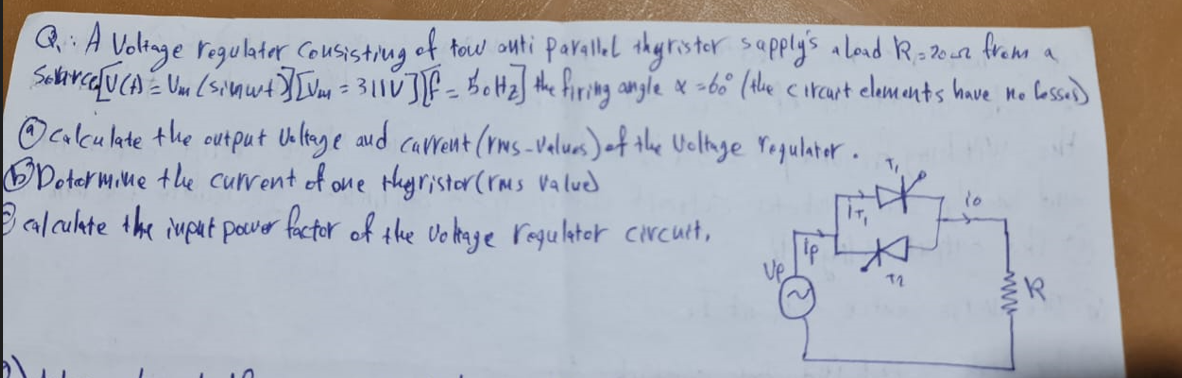 Q.: A Voltage regulator Consisting of tow anti parallel thyristor supply's a load R=20Ω from a
Source [V(t) = Vm (sinwt)] [Vm = 311V] [f = 50Hz] the firing angle α = 60° (the circuit elements have no losses)
ⓐ calculate the output Voltage and current (rms-values) of the Voltage regulator.
ⓑ Determine the current of one thyristor (rms value)
ⓒ calculate the input power factor of the voltage regulator circuit.
T1
iT1
io
ip
Vp
T2
R